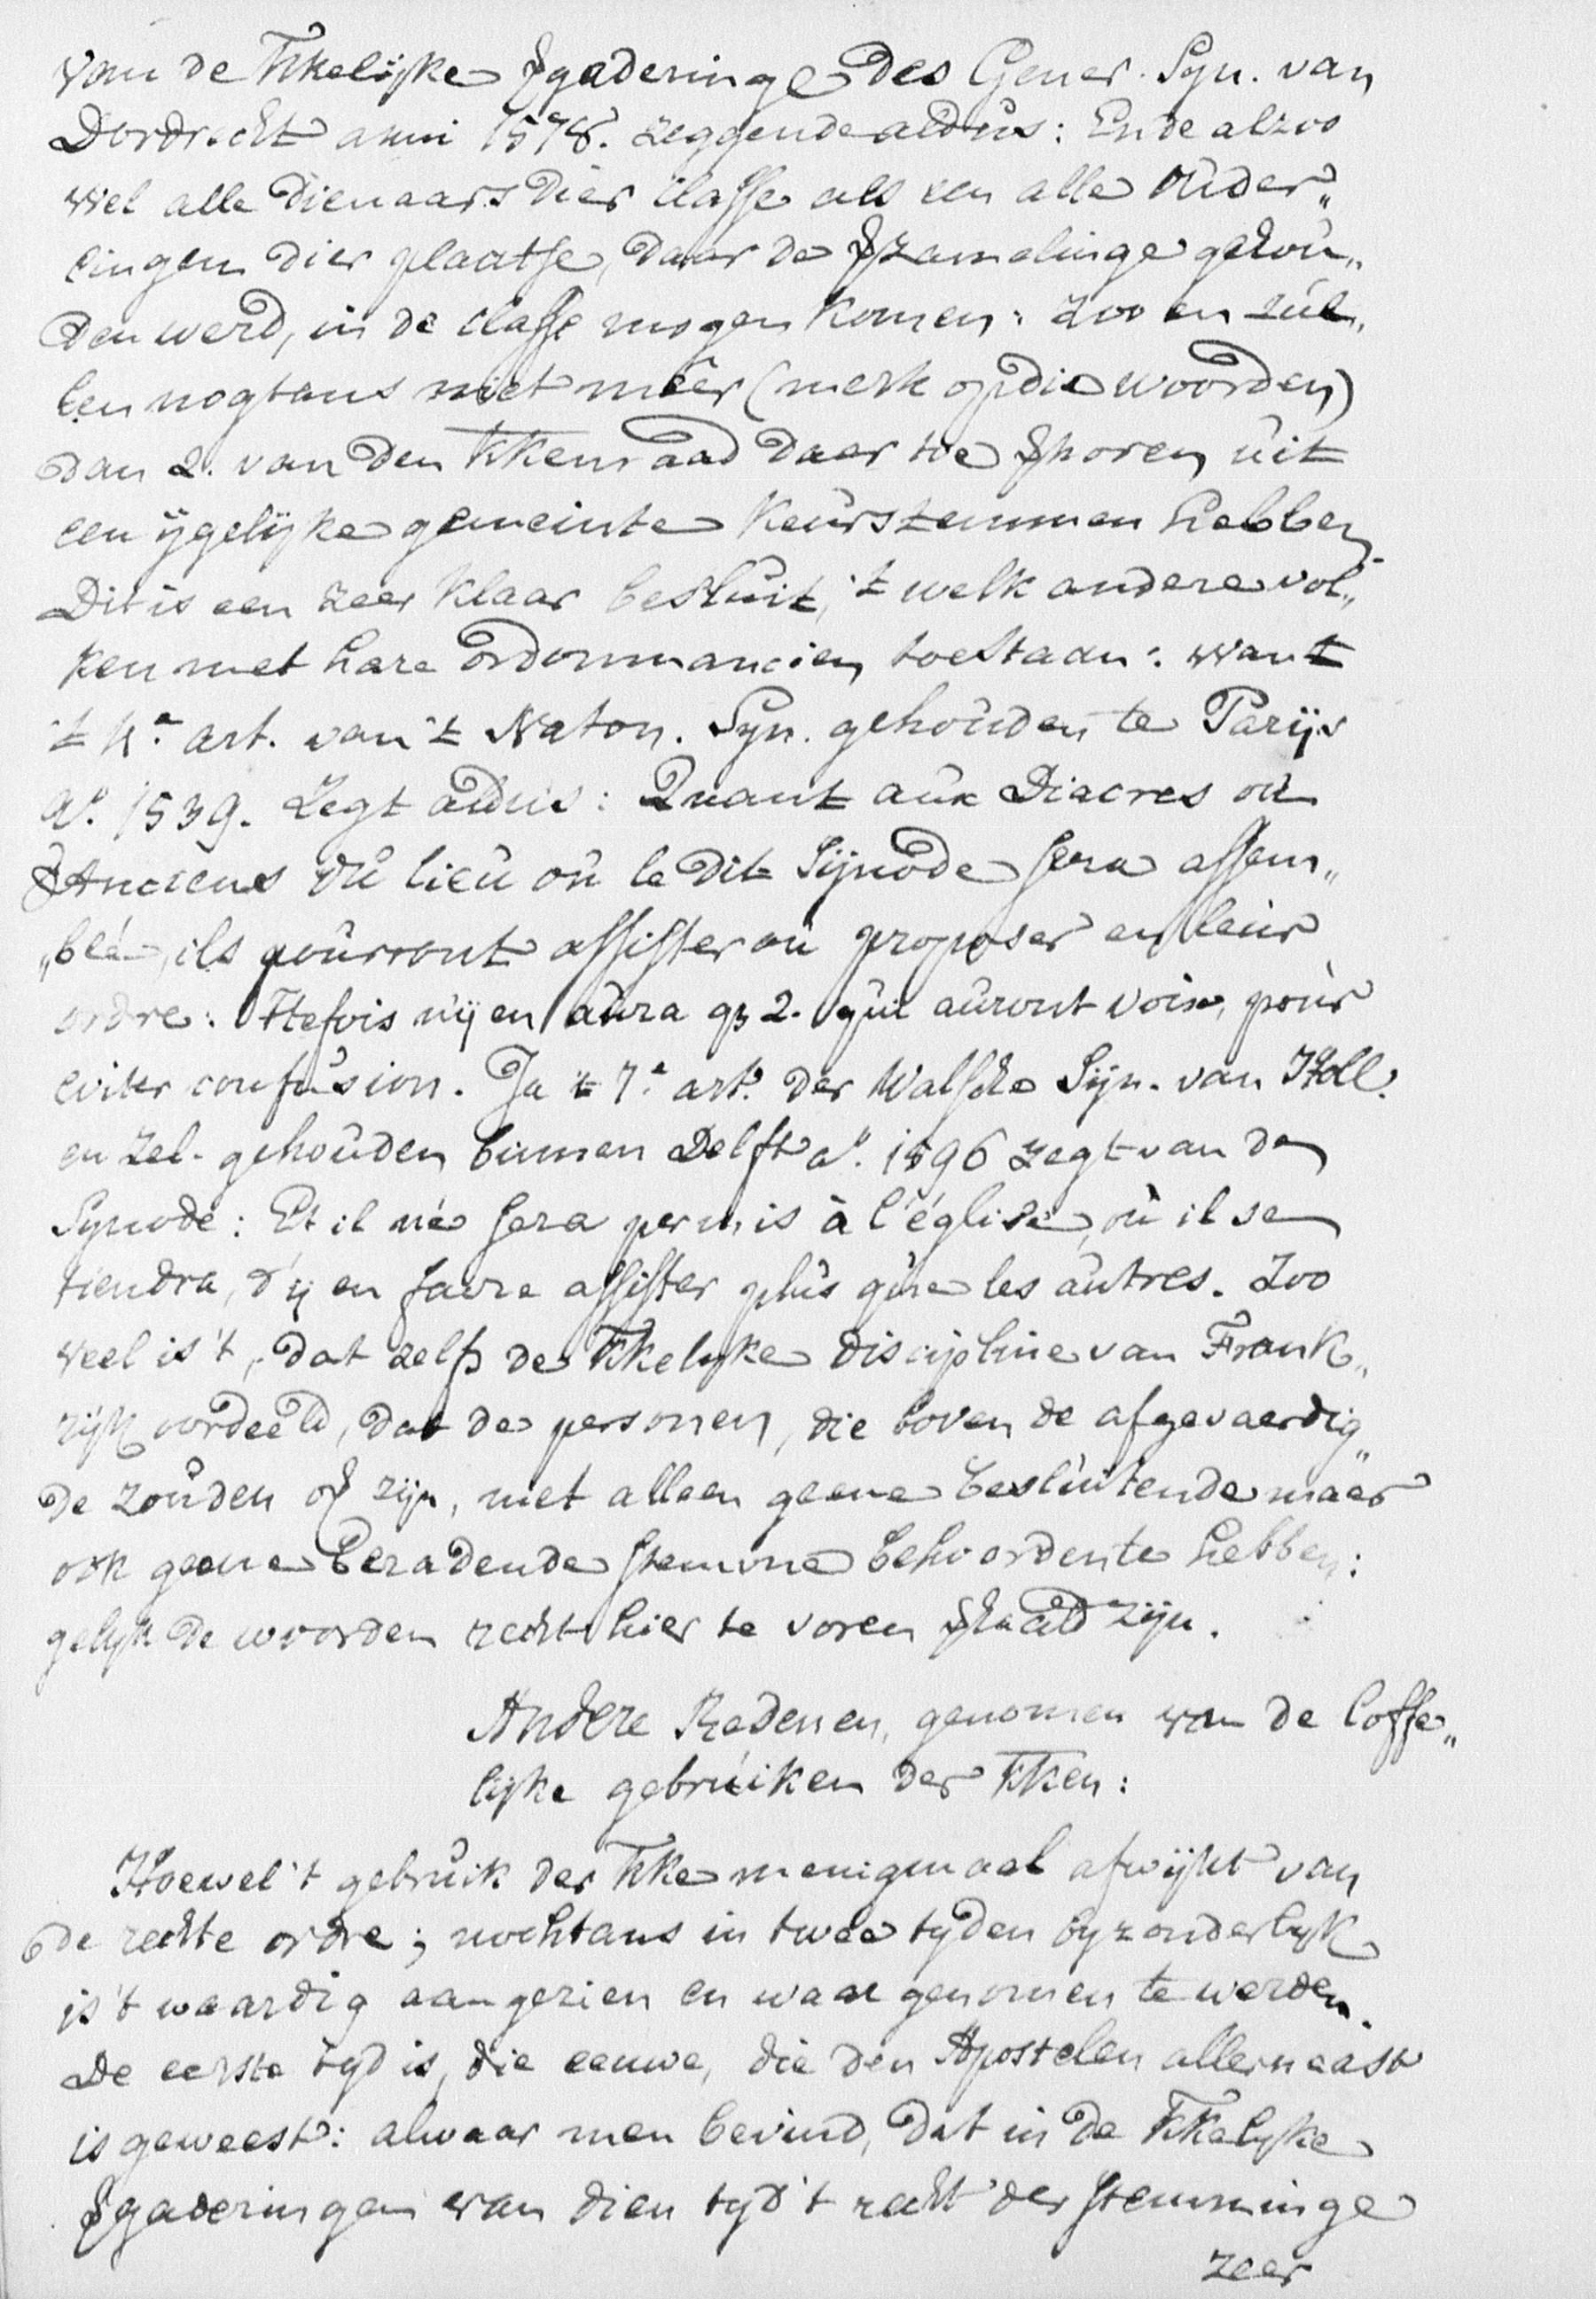 van de kkelijke vgaderinge des Gener. Syn. van
Dordrecht anni 1578. zeggende aldus: Ende alzoo
wel alle dienaars dier classe als een alle ouder„
lingen dier plaatse, daar de vzamelinge gehou„
den werd, in de classe mogen komen: zoo en zul„
len nogtans niet meer (merk op die woorden)
dan 2. van den kkenraad daer toe vkoren uit
een ijgelijke gemeinte keurstemmen hebben.
Dit is een zeer klaar besluit, 't welk andere vol„
ken met hare ordonnancien toestaan: want
't 4e art. van 't Naton. Syn. gehouden te Parijs
ao. 1539. Zegt aldus: Quant aux Diacres ou
Anciens du lieu où le dit Sijnode sera assem„
„blé, ils pourront assister ou proposer en leur
ordre: Ttefois n'ij en aura q3 2. qui auront voix, pour
eviter confusion. Ja 't 7e art. der Walsche Sijn. van Holl.
en Zel. gehouden binnen Delft ao. 1596 zegt van de
Synode: Et il ne sera permis à l'église, où il se
tiendra, d'ij en faire assister plus que les autres. Zoo
veel is 't, dat zelfs de kkelyke discipline van Frank„
rijk oordeeld, dat de personen, die boven de afgevaerdig„
de zouden of zijn, niet alleen geene besluitende maer
ook geene beradende stemme behoordente hebben:
gelijk de woorden recht hier te voren vhaald zijn.
Andere Redenen, genomen van de loffe„
lijke gebruiken der kken:
Hoewel 't gebruik der kke menigmaal afwijkt van
de rechte ordre; nochtans in twee tyden byzonderlyk
is 't waardig aangezien en waar genomen te werden.
De eerste tyd is, die eeuwe, die den Apostelen allernaast
is geweest: alwaar men bevind, dat in de kkelyke
vgaderingen van dien tyd 't recht der stemminge
zeer